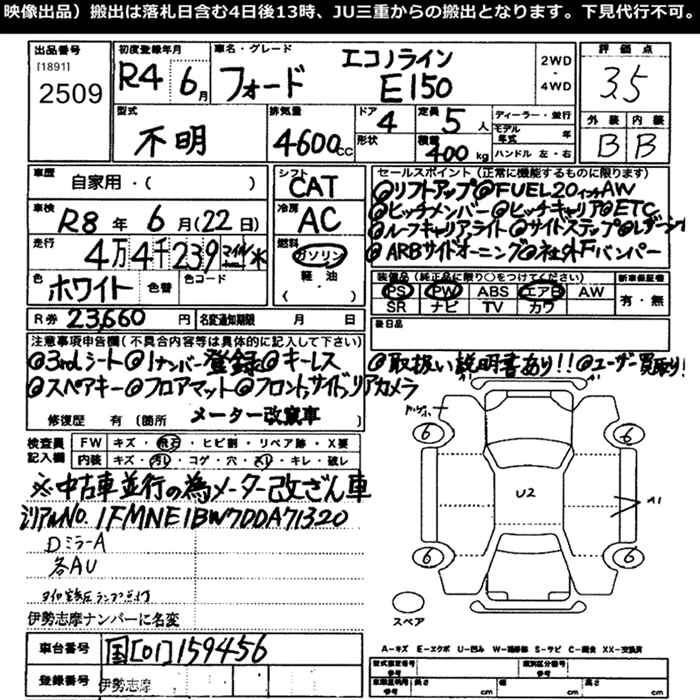 映像出品）搬出は落札日含む4日後13時、JU三重からの搬出となります。下見代行不可。
出品番号
[1891]
2509
初度登録年月
R4 6月
車名・グレード
フォード エコノライン E150
2WD・4WD
評価点
3.5
型式
不明
排気量
4600cc
ドア 4
形状
定員 5人
積載 400kg
ディーラー・並行
モデル年式 年
ハンドル 左・右
外装 内装
B B
車歴
自家用・( )
車検
R8年 6月(22日)
走行
4万4千239 マイル ※
色
ホワイト
色替
色コード
シフト
CAT
冷房
AC
燃料
ガソリン
軽・油
( )
セールスポイント（正常に機能するものに限ります）
◎リフトアップ◎FUEL20インチAW
◎ヒッチメンバー◎ヒッチキャリア◎ETC
◎ルーフキャリアライト◎サイドステップ◎レザーシート
◎ARBサイドオーニング◎社外Fバンパー
装備品（純正品に限り○をつけてください）
PS PW ABS エアB AW
SR ナビ TV カワ
新車保証書
有・無
R券 23,660円
名変通知期限 月 日
後日品
注意事項申告欄（不具合内容等は具体的に記入して下さい）
◎3rdシート◎1ナンバー登録◎キーレス
◎スペアキー◎フロアマット◎フロント,サイド,リアカメラ
◎取扱い説明書あり!!◎ユーザー買取り!
修復歴 有（箇所 メーター改竄車
検査員記入欄
FW キズ・飛石・ヒビ割・リペア跡・X要
内装 キズ・汚レ・コゲ・穴・スレ・キレ・破レ
※中古車並行の為メーター改ざん車
シリアルNo. 1FMNE1BW7DDA71320
DミラーA
各AU
タイヤ空気圧ランプ点灯
伊勢志摩ナンバーに名変
6 6
U2
A1
6 6
スペア
車台番号
国[01]159456
登録番号
伊勢志摩
A－キズ E－エクボ U－凹み W－補修跡 S－サビ C－腐食 XX－交換済
型式指定番号
参考
類別区分番号
参考
長さ cm
幅 cm
高さ cm